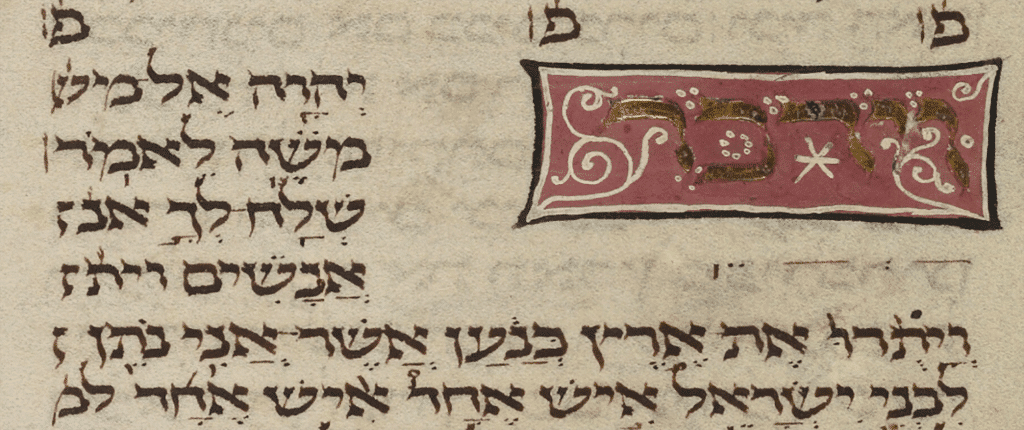 פ פ פ
וידבר
יְהוָה אֶל מש
מֹשֶׁה לֵּאמֹר
שְׁלַח לְךָ אנ
אֲנָשִׁים וית
וְיָתֻרוּ אֶת אֶרֶץ כְּנַעַן אֲשֶׁר אֲנִי נֹתֵן
לִבְנֵי יִשְׂרָאֵל אִישׁ אֶחָד אִישׁ אֶחָד למ